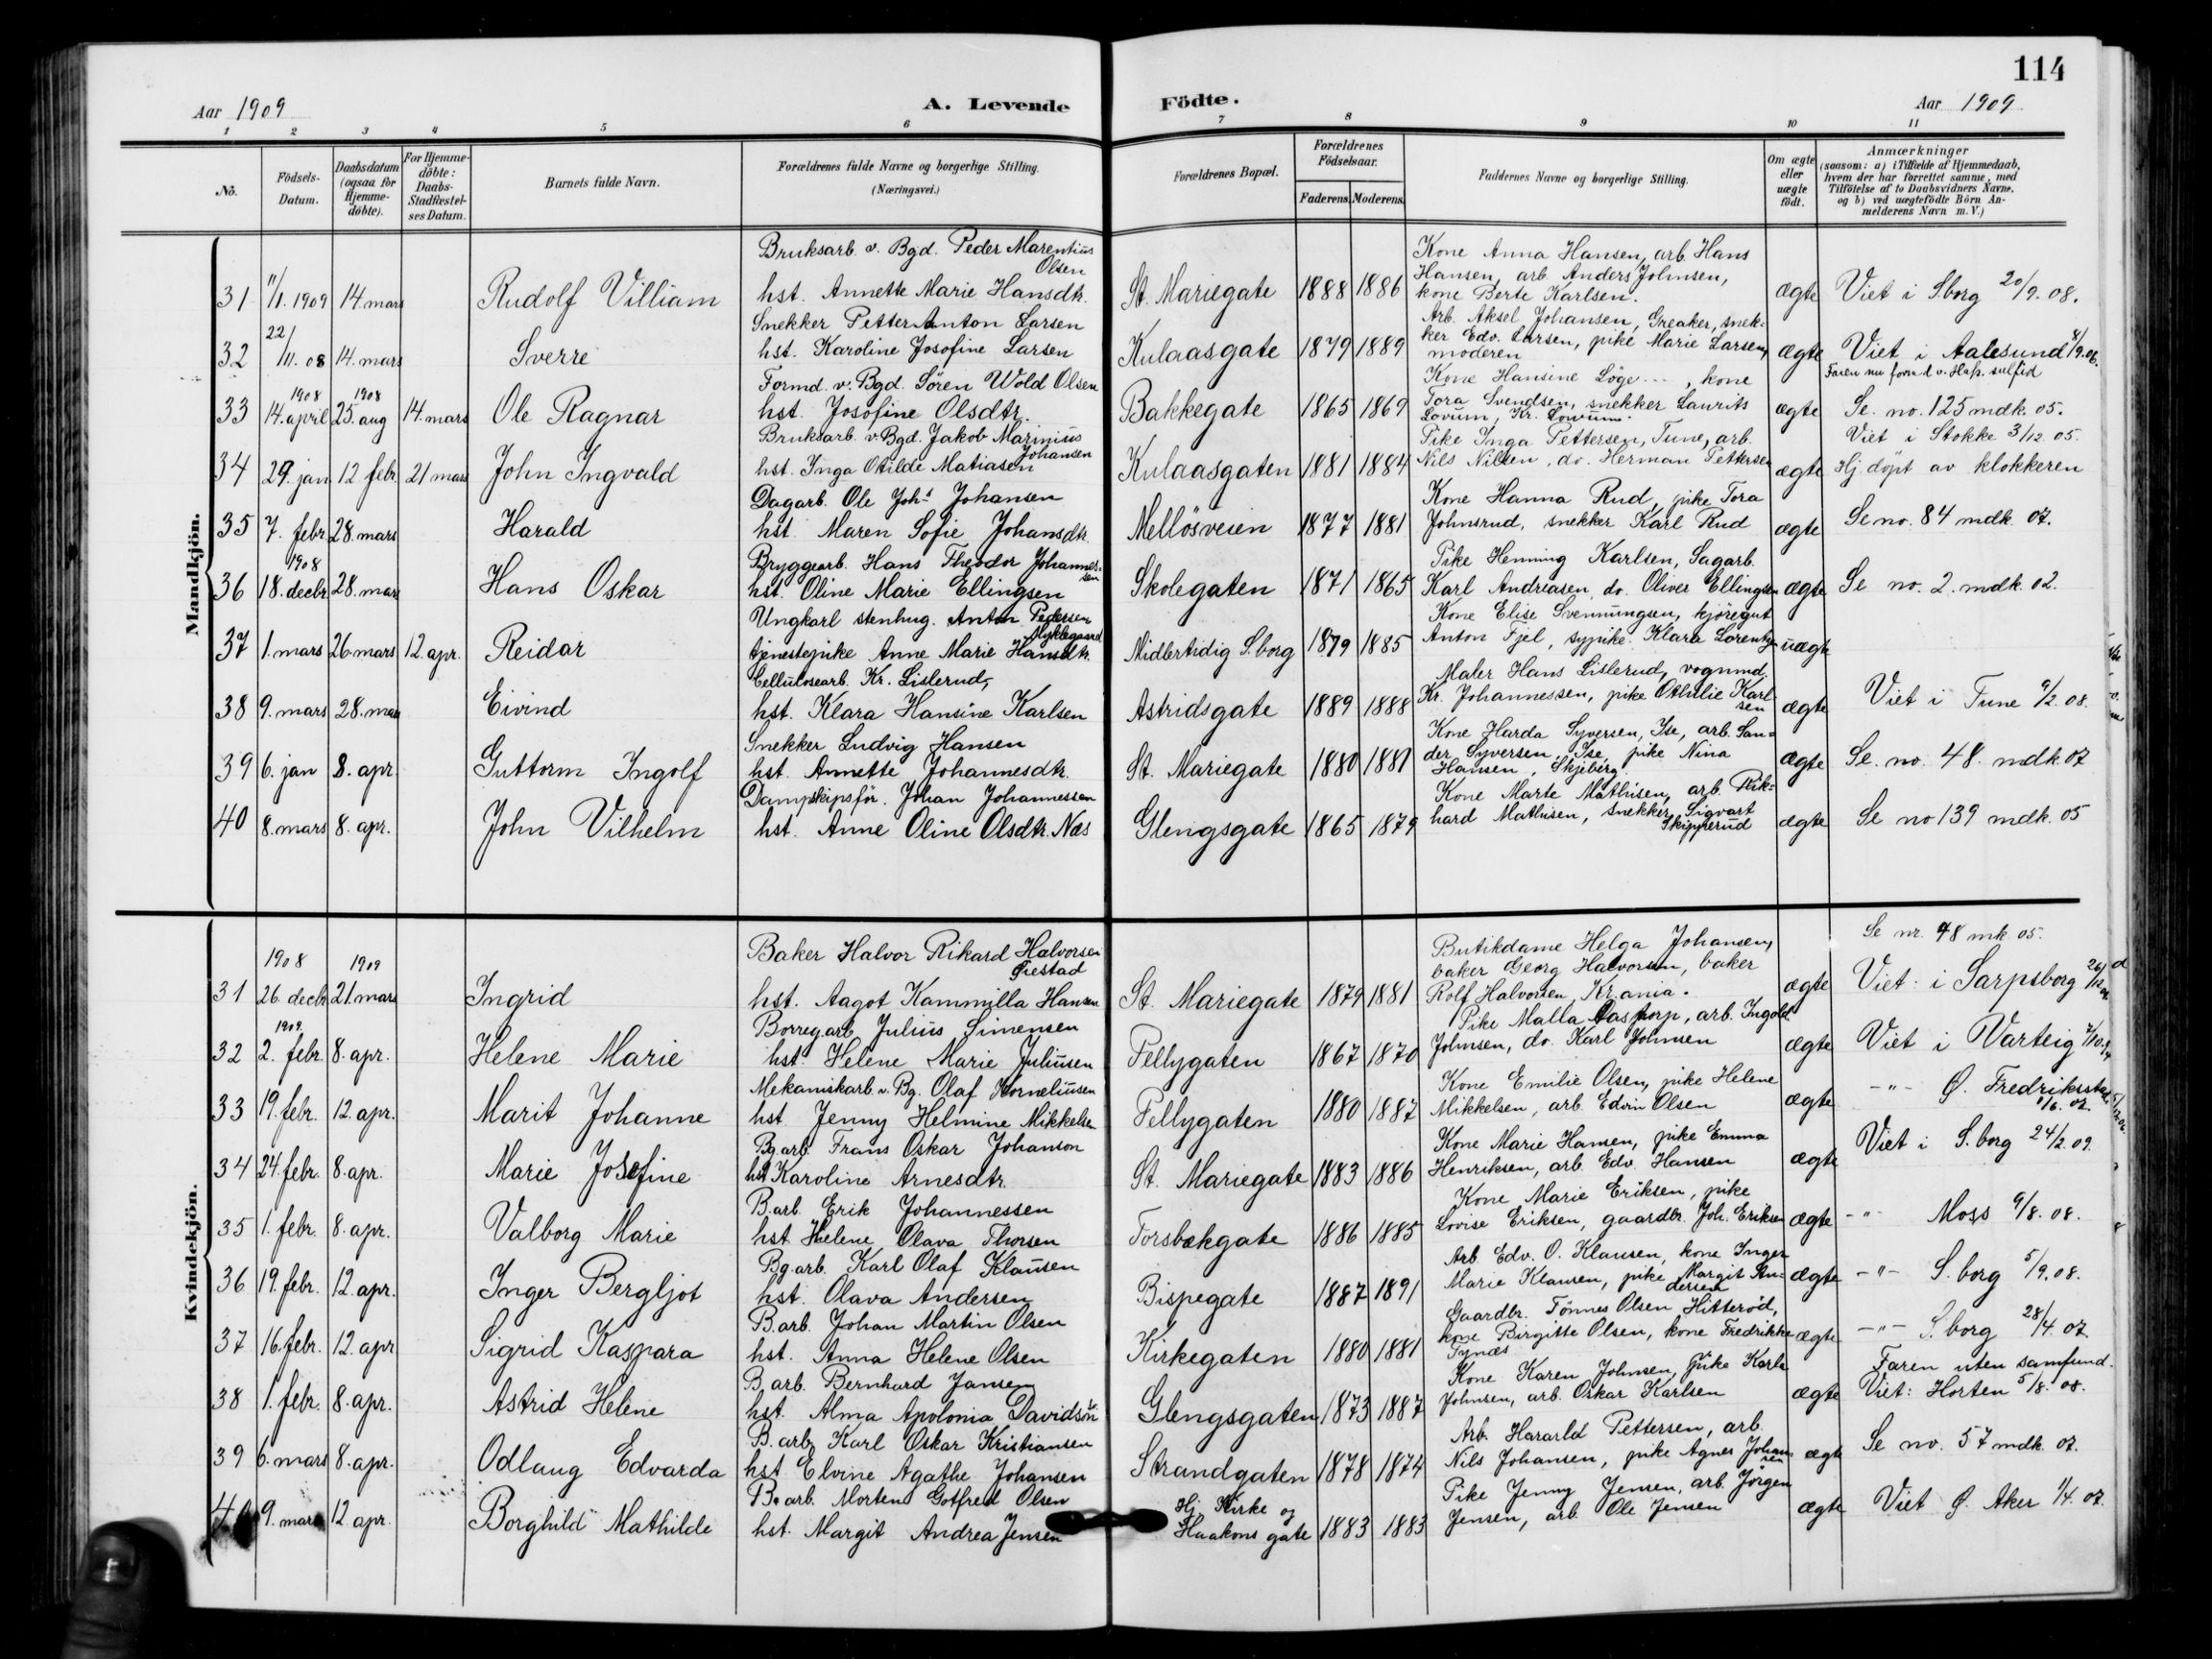 114
Aar 1909
A. Levende Födte.
Aar 1909
1 2 3 4 5 6 7 8 9 10 11
No.
Födsels-Datum.
Daabsdatum (ogsaa for Hjemme-döbte).
For Hjemme-döbte: Daabs-Stadfæstel-ses Datum.
Barnets fulde Navn.
Forældrenes fulde Navne og borgerlige Stilling. (Næringsvei.)
Forældrenes Bopæl.
Forældrenes Födselsaar.
Faderens. Moderens.
Faddernes Navne og borgerlige Stilling.
Om ægte eller uægte födt.
Anmærkninger
(saasom: a) i Tilfælde af Hjemmedaab, hvem der har forrettet samme, med Tilföielse af to Daabsvidners Navne, og b) ved uægtefödte Börn An-melderens Navn m. V.)
Mandkjön.
31 11/1. 1909 14 mars Rudolf Villiam
Bruksarb. v. Bgd. Peder Marentius Olsen
hst. Annette Marie Hansdtr.
St. Mariegate 1888 1886
Kone Anna Hansen, arb. Hans
Hansen, arb. Anders Johnsen,
kone Berte Karlsen.
ægte Viet i S.borg 20/9. 08.
32 22/11. 08 14. mars Sverre
Snekker Petter Anton Larsen
hst. Karoline Josofine Larsen
Kulaasgate 1879 1889
Arb. Aksel Johansen, Greaker, snek-
ker Edv. Larsen, pike Marie Larsen,
moderen
ægte Viet i Aalesund 8/9. 06.
Faren nu formd v. Haf. sulfid
33 1908 14. april 1908 25. aug 14. mars Ole Ragnar
Formd. v. Bgd. Sören Wold Olsen
hst. Josofine Olsdtr.
Bakkegate 1865 1869
Kone Hansine Löge..., kone
Tora Svendsen, snekker Laurits
Lovum, Kr. Lovum
ægte Se no. 125 mdk. 05.
34 29. jan 12 febr. 21 mars John Ingvald
Bruksarb. v. Bgd. Jakob Marinius Johansen
hst. Inga Otilde Matiasen
Kulaasgaten 1881 1884
Pike Inga Pettersen, Tune, arb.
Nils Nilsen, do. Herman Pettersen
ægte Viet i Stokke 3/12. 05.
Hj. döpt av klokkeren
35 7. febr. 28. mars Harald
Dagarb. Ole Johs Johansen
hst. Maren Sofie Johansdtr.
Mellösveien 1877 1881
Kone Hanna Rud, pike Tora
Johnsrud, snekker Karl Rud
ægte Se no. 84 mdk. 07.
36 1908 18. decbr. 28. mars Hans Oskar
Bryggearb. Hans Theodor Johannes-sen
hst. Oline Marie Ellingsen
Skolegaten 1871 1865
Pike Henning Karlsen, Sagarb.
Karl Andriasen, do. Oliver Ellingsen
ægte Se no. 2. mdk. 02.
37 1. mars 26 mars 12. apr. Reidar
Ungkarl stenhug. Anton Pedersen Myklegaard
tjenestepike Anne Marie Hansdtr.
Midlertidig S.borg 1879 1885
Kone Elise Svenningsen, kjöregut
Anton Fjel, sypike Klara Lorentzen
uægte
38 9. mars 28. mars Eivind
Cellulosearb. Kr. Lislerud,
hst. Klara Hansine Karlsen
Astridsgate 1889 1888
Maler Hans Lislerud, vognmd.
Kr. Johannessen, pike Othilie Karl-sen
ægte Viet i Tune 9/2. 08.
39 6. jan 8. apr. Guttorm Ingolf
Snekker Ludvig Hansen
hst. Annette Johannesdtr.
St. Mariegate 1880 1881
Kone Harda Syversen, Ise, arb. San-
der Syversen, Ise, pike Nina
Hansen, Skjeberg.
ægte Se no. 48. mdk 07
40 8. mars 8. apr. John Vilhelm
Dampskipsför. Johan Johannessen
hst. Anne Oline Olsdtr. Næs
Glengsgate 1865 1879
Kone Marte Mathisen, arb. Rik-
hard Mathisen, snekker Sigvart
Skipperud
ægte Se no 139 mdk. 05
Kvindekjön.
31 1908 26. decbr. 1909 21. mars Ingrid
Baker Halvor Rikard Halvorsen
hst. Aagot Kammilla Hansen
St. Mariegate 1879 1881
Butikdame Helga Johansen,
baker Georg Halvorsen, baker
Rolf Halvorsen, Kr.ania.
ægte Se nr. 48 mk. 05.
Viet i Sarpsborg
32 1909. 2. febr. 8. apr. Helene Marie
Borregarb. Julius Simensen
hst. Helene Marie Juliusen
Pellygaten 1867 1870
Pike Malla, arb. Ingold
Johnsen, do. Karl Johnsen
ægte Viet i Varteig
33 19. febr. 12. apr. Marit Johanne
Mekaniskarb. v. Bg. Olaf Korneliusen
hst. Jenny Helmine Mikkelsen
Pellygaten 1880 1887
Kone Emilie Olsen, pike Helene
Mikkelsen, arb. Edvin Olsen
ægte -"- Ø. Fredriksstad
34 24. febr. 8. apr. Marie Josefine
Bg. arb. Frans Oskar Johanson
hst Karoline Arnesdtr.
St. Mariegate 1883 1886
Kone Marie Hansen, pike Emma
Henriksen, arb. Edv. Hansen
ægte Viet i S.borg 24/2. 09.
35 1. febr. 8. apr. Valborg Marie
B. arb. Erik Johannessen
hst Helene Olava Thorsen
Forsbækgate 1886 1885
Kone Marie Eriksen, pike
Lovise Eriksen, gaardbr. Joh. Eriksen
ægte -"- Moss 9/8. 08.
36 19. febr. 12. apr. Inger Bergljot
Bg. arb. Karl Olaf Klausen
hst. Olava Andersen
Bispegate 1887 1891
Arb. Edv. O. Klausen, kone Inger
Marie Klausen, pike Margit An-dersen
ægte -"- S.borg 5/9. 08.
37 16. febr. 12. apr Sigrid Kaspara
B. arb. Johan Martin Olsen
hst. Anna Helene Olsen
Kirkegaten 1880 1881
Gaardbr. Tönnes Olsen Hitteröd,
kone Birgitte Olsen, kone Fredrikke
Synæs
ægte -"- S.borg 28/4. 07.
38 1. febr. 8. apr. Astrid Helene
B. arb. Bernhard Jansen
hst. Alma Apolonia Davidson
Glengsgaten 1873 1887
Kone Karen Johnsen, pike Karla
Johnsen, arb. Oskar Karlsen
ægte Faren uten samfund.
Viet: Horten 5/8. 08.
39 6. mars 8. apr. Odlaug Edvarda
B. arb. Karl Oskar Kristiansen
hst Elvine Agathe Johansen
Strandgaten 1878 1874
Arb. Hararld Pettersen, arb.
Nils Johansen, pike Agnes Johan-sen
ægte Se no. 57 mdk. 07.
40 9. mars 12 apr. Borghild Mathilde
B. arb. Morten Gotfred Olsen
hst. Margit Andrea Jensen
Hj. Kirke og
Haakons gate 1883 1883
Pike Jenny Jensen, arb. Jörgen
Jensen, arb. Ole Jensen
ægte Viet Ø. Aker 1/4. 07.